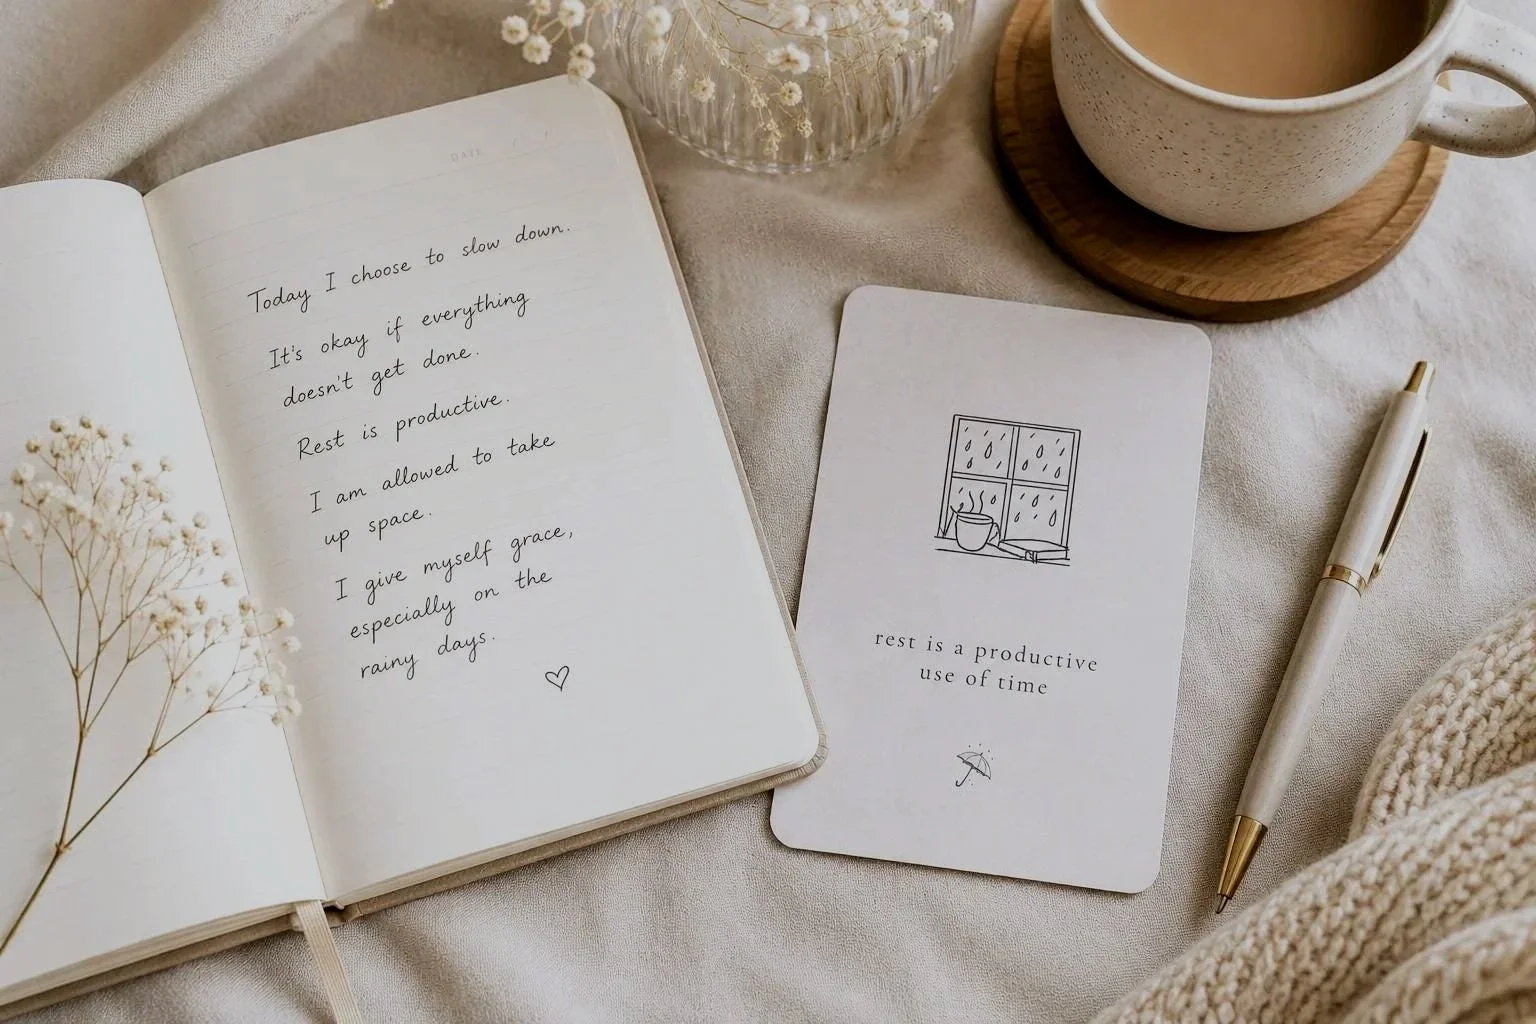 DATE / /
Today I choose to slow down.
It's okay if everything
doesn't get done.
Rest is productive.
I am allowed to take
up space.
I give myself grace,
especially on the
rainy days.
rest is a productive
use of time